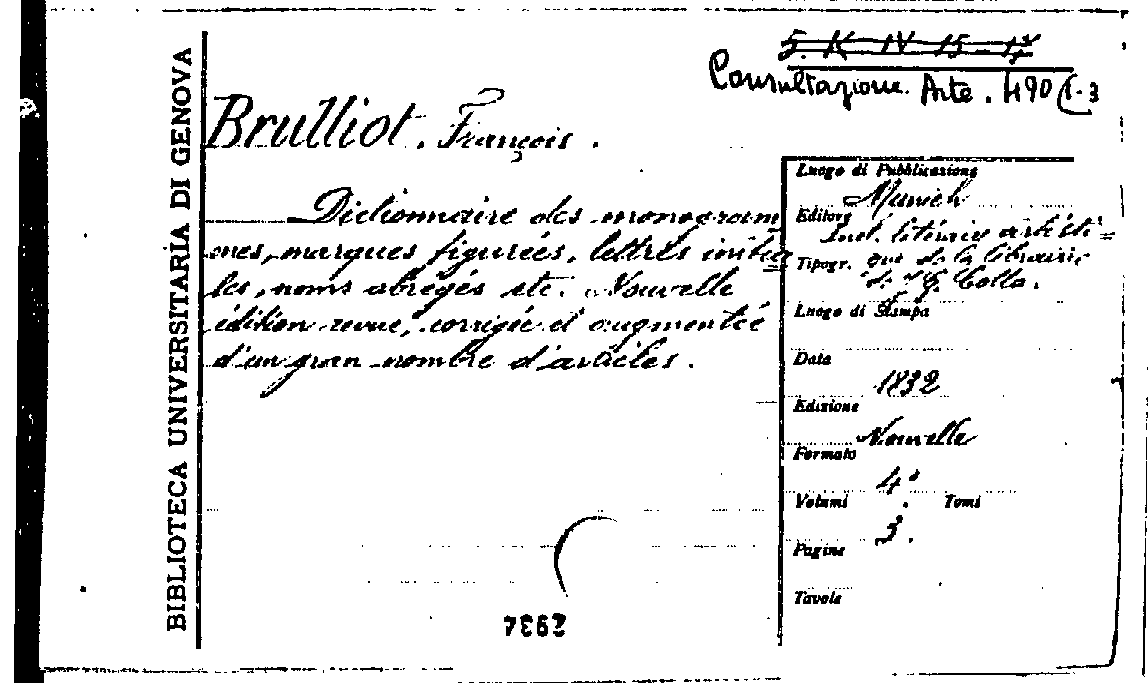 BIBLIOTECA UNIVERSITARIA DI GENOVA
5. K. IV. 15-17
Consultazione. Arte. 490/1-3
Brulliot. François.
Dictionnaire des monogram
mes, marques figurées, lettres initia=
les, noms abrégés etc. Nouvelle
édition revue, corrigée et augmentée
d'un gran nombre d'articles.
Luogo di Pubblicazione
Munich
Editore
Inst. literaire artisti=
Tipogr. que de la librairie
de J. G. Cotta.
Luogo di Stampa
Data
1832
Edizione
Nouvelle
Formato
4°
Volumi Tomi
3.
Pagine
Tavole